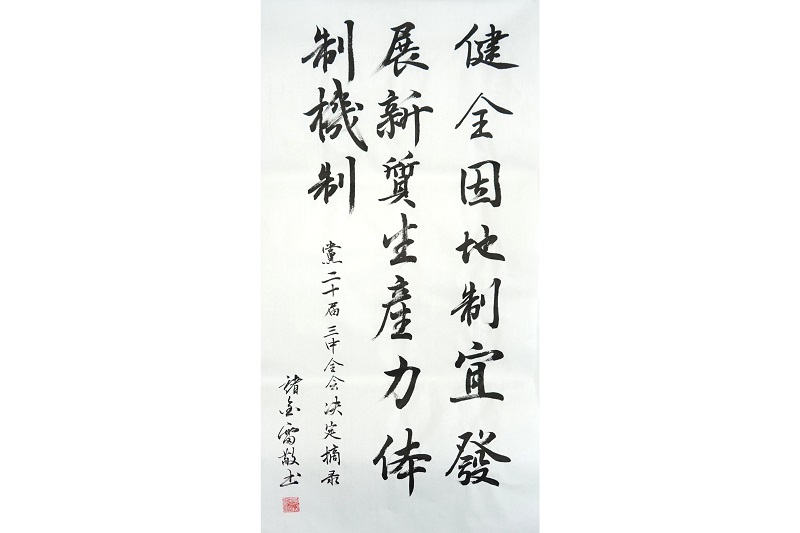 健全因地制宜發
展新質生產力体
制機制
黨二十届三中全会决定摘录
诸金雷敬书